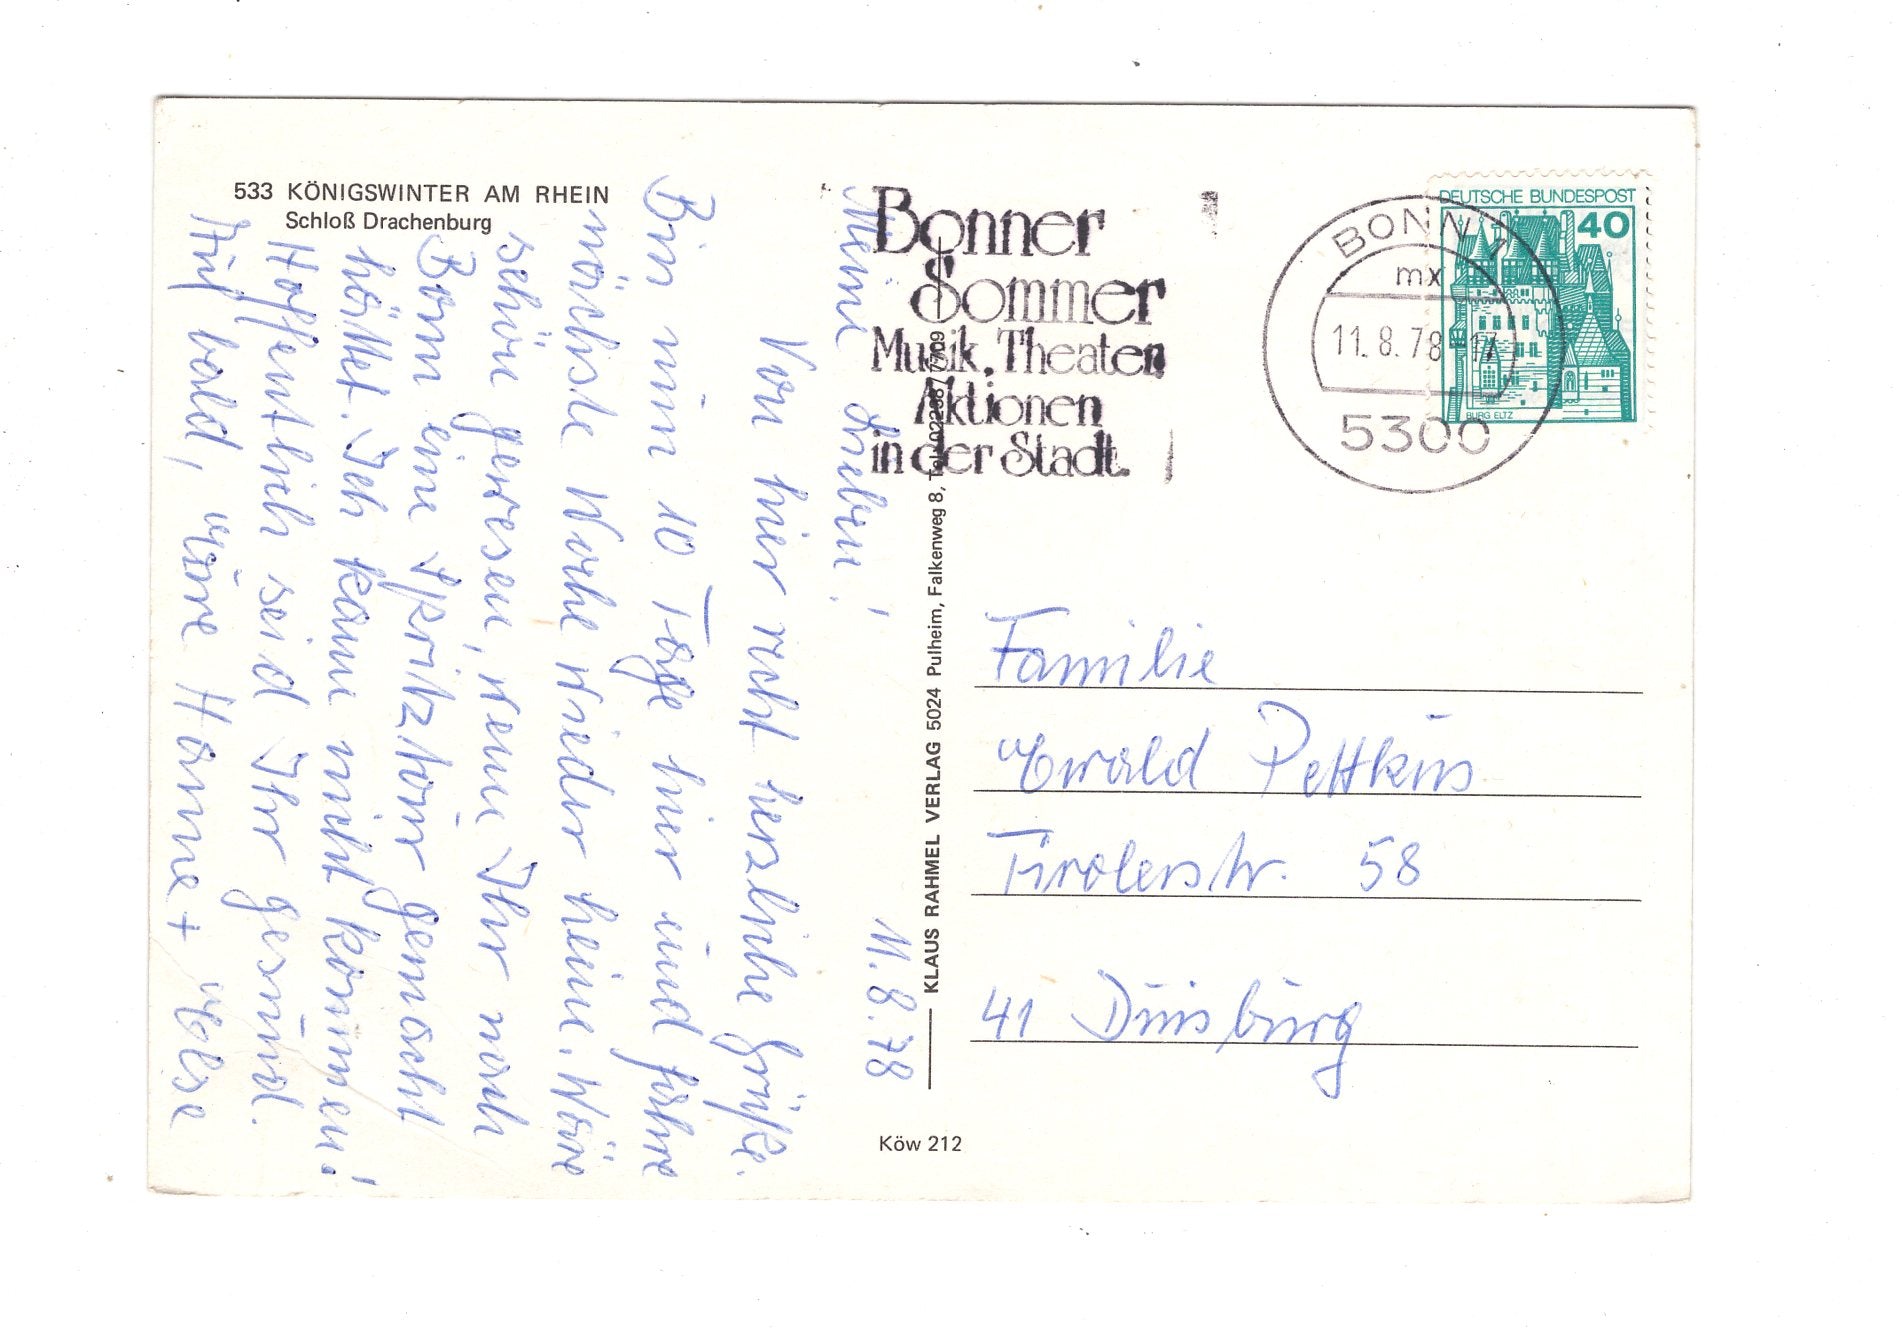 533 KÖNIGSWINTER AM RHEIN
Schloß Drachenburg
11.8.78
Meine Lieben!
Von hier recht herzliche Grüße.
Bin nun 10 Tage hier und fahre
nächste Woche wieder heim. Wäre
schön gewesen, wenn Ihr nach
Bonn eine Spritztour gemacht
hättet. Ich kann nicht kommen!
Hoffentlich seid Ihr gesund.
Auf bald, eure Hanne +
KLAUS RAHMEL VERLAG 5024 Pulheim, Falkenweg 8, Tel. 02238/7709
Köw 212
Bonner
Sommer
Musik, Theater,
Aktionen
in der Stadt.
BONN 1
mx
11.8.78-17
5300
DEUTSCHE BUNDESPOST
40
BURG ELTZ
Familie
Ewald Pettkus
Tirolerstr. 58
41 Duisburg